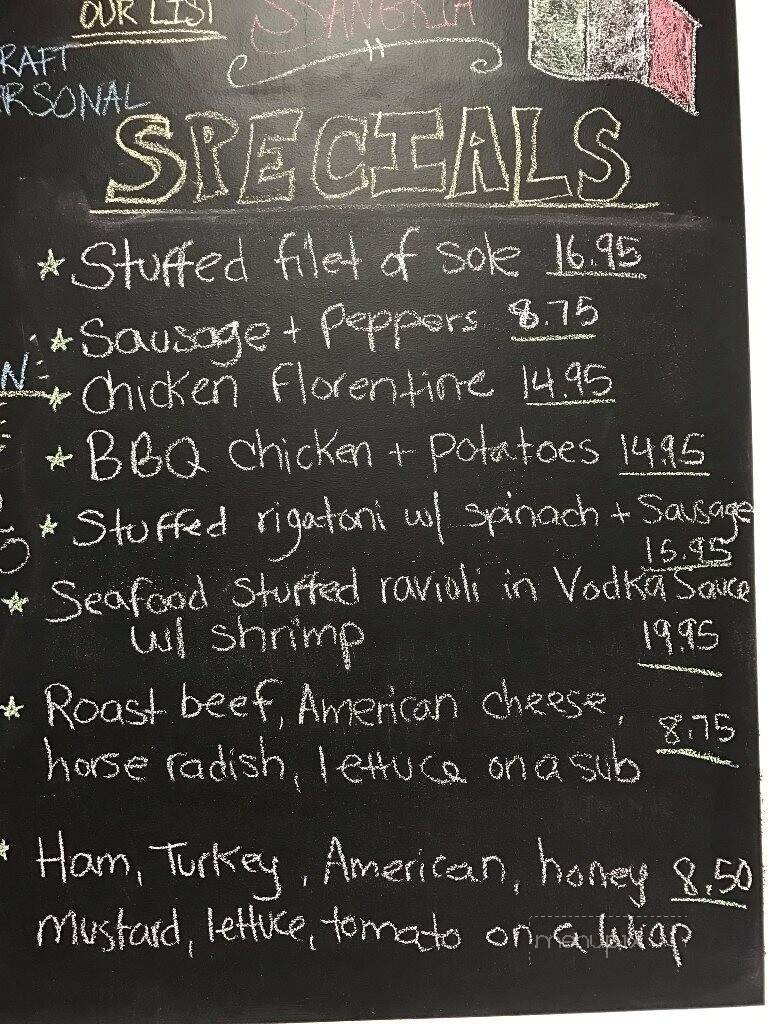 OUR LIST SANGRIA
RAFT
RSONAL
SPECIALS
Stuffed filet of sole 16.95
Sausage + Peppers 8.75
Chicken Florentine 14.95
BBQ chicken + potatoes 14.95
Stuffed rigatoni w/ spinach + Sausage
15.95
Seafood stuffed ravioli in Vodka Sauce
w/ shrimp 19.95
Roast beef, American cheese,
8.75
horse radish, lettuce on a sub
Ham, Turkey, American, honey 8.50
mustard, lettuce, tomato on a wrap
menupix